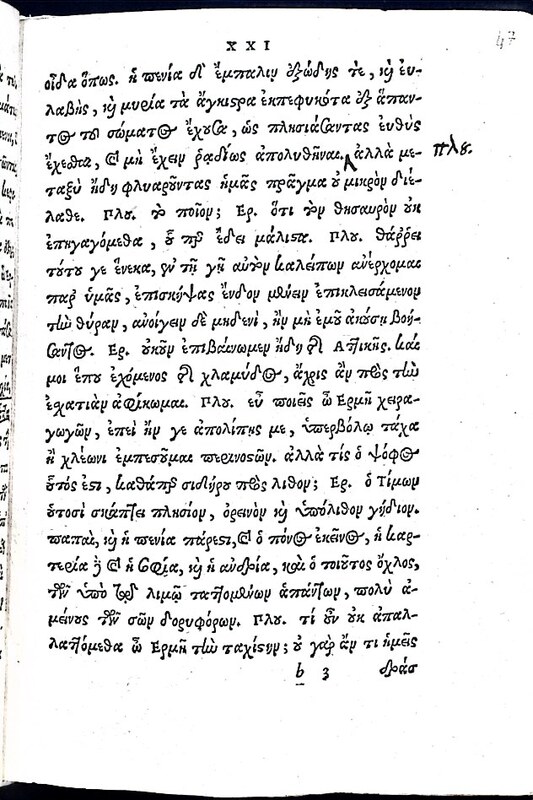 XXI
47
οἶδα ὅπως. ἡ πενία δ' ἔμπαλιν ἰξώδης τε, καὶ εὐ-
λαβὴς, καὶ μυρία τὰ ἄγκιστρα ἐκπεφυκότα ἐξ ἅπαν-
τος τοῦ σώματος ἔχουσα, ὡς πλησιάσαντας εὐθὺς
ἔχεσθαι, καὶ μὴ ἔχειν ῥᾳδίως ἀπολυθῆναι. ἀλλὰ με- πλου.
ταξὺ ἤδη φλυαροῦντας ἡμᾶς πρᾶγμα οὐ μικρὸν διέ-
λαθε. Πλου. τὸ ποῖον; Ερ. ὅτι τὸν θησαυρὸν οὐκ
ἐπηγαγόμεθα, οὗπερ ἔδει μάλιστα. Πλου. θάῤῥει
τούτου γε ἕνεκα, ἐν τῇ γῇ αὐτὸν καλείπων ἀνέρχομαι
παρ' ὑμᾶς, ἐπισκήψας ἔνδον μένειν ἐπικλεισάμενον
τὴν θύραν, ἀνοίγειν δὲ μηδενὶ, ἢν μὴ ἐμοῦ ἀκούσῃ βοή-
σαντος. Ερ. οὐκοῦν ἐπιβαίνωμεν ἤδη τῆς Ἀττικῆς. καί
μοι ἕπου ἐχόμενος τῆς χλαμύδος, ἄχρις ἂν πρὸς τὴν
ἐχατιὰν ἀφίκωμαι. Πλου. εὖ ποιεῖς ὦ Ἑρμῆ χειρα-
γωγῶν, ἐπεὶ ἤν γε ἀπολίπῃς με, ὑπερβόλῳ τάχα
ἢ κλέωνι ἐμπεσοῦμαι περινοστῶν. ἀλλὰ τίς ὁ ψόφος
οὗτός ἐστι, καθάπερ σιδήρου πρὸς λίθον; Ερ. ὁ Τίμων
οὑτοσὶ σκάπτει πλησίον, ὀρεινὸν καὶ ὑπόλιθον γήδιον.
παπαὶ, καὶ ἡ πενία πάρεστι, καὶ ὁ πόνος ἐκεῖνος, ἡ καρ-
τερία τε καὶ ἡ σοφία, καὶ ἡ ἀνδρία, καὶ ὁ τοιοῦτος ὄχλος,
τῶν ὑπὸ τῷ λιμῷ ταττομένων ἁπάντων, πολὺ ἀ-
μείνους τῶν σῶν δορυφόρων. Πλου. τί οὖν οὐκ ἀπαλ-
λαττόμεθα ὦ Ἑρμῆ τὴν ταχίστην; οὐ γὰρ ἄν τι ἡμεῖς
b 3 δράσ